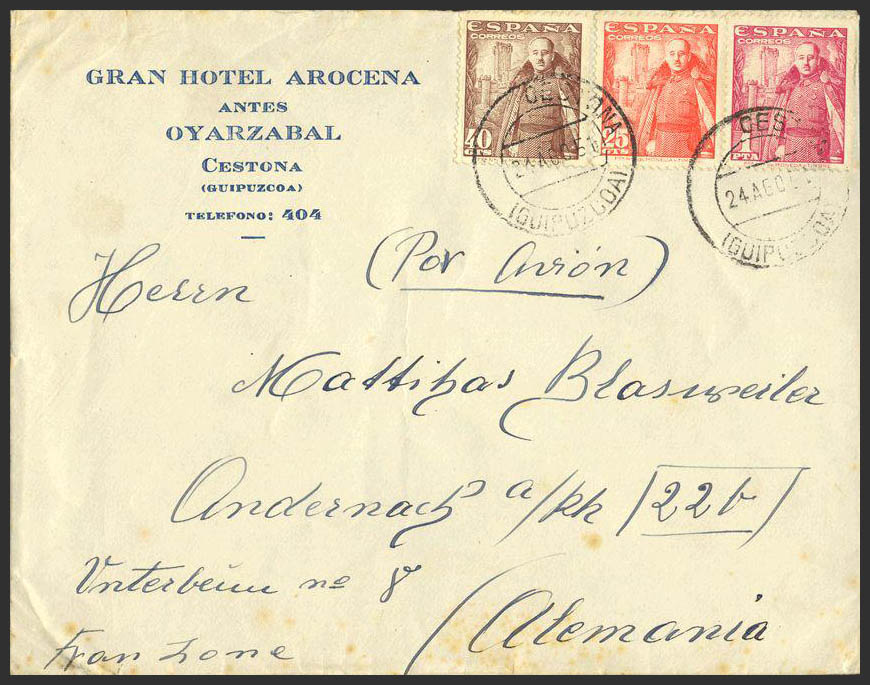 GRAN HOTEL AROCENA
ANTES
OYARZABAL
CESTONA
(GUIPUZCOA)
TELEFONO: 404
ESPAÑA
CORREOS
40
CTS
ESPAÑA
CORREOS
25
CTS
ESPAÑA
CORREOS
1
PTA
CESTONA
24 AGO 51
(GUIPUZCOA)
CES
24 AGO 5
(GUIPUZCOA)
(Por Avión)
Herrn
Mattihas Blasweiler
Andernach a/Rh (22b)
Unterbeim nº 8
(Alemania
Fran Zone